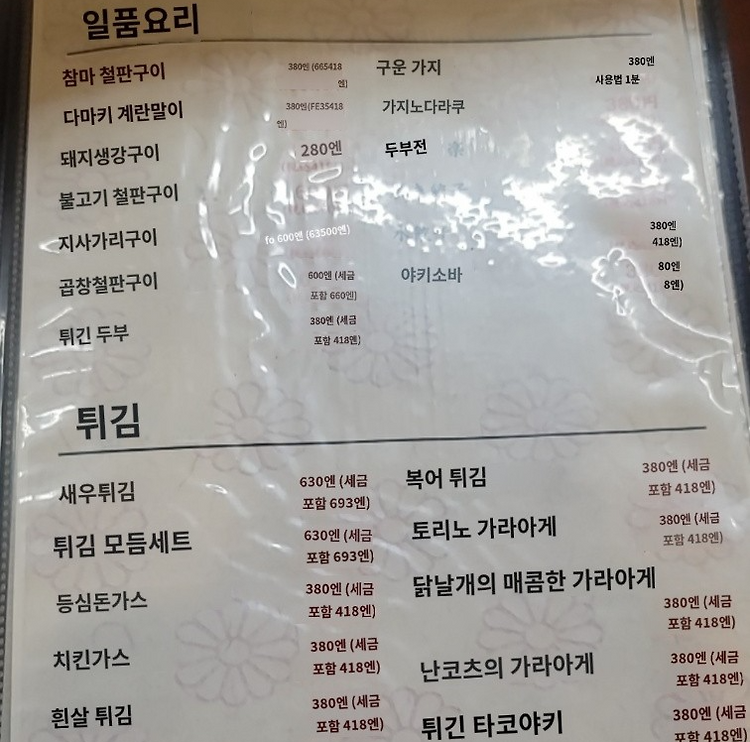 일품요리
참마 철판구이
380엔 (665418
엔)
다마키 계란말이
380엔(FE35418
엔)
돼지생강구이
280엔
불고기 철판구이
지사가리구이
fo 600엔 (63500엔)
곱창철판구이
600엔 (세금
포함 660엔)
튀긴 두부
380엔 (세금
포함 418엔)
구운 가지
380엔
사용법 1분
가지노다라쿠
두부전
380엔
418엔)
야키소바
80엔
8엔)
튀김
새우튀김
630엔 (세금
포함 693엔)
튀김 모듬세트
630엔 (세금
포함 693엔)
등심돈가스
380엔 (세금
포함 418엔)
치킨가스
380엔 (세금
포함 418엔)
흰살 튀김
380엔 (세금
포함 418엔)
복어 튀김
380엔 (세금
포함 418엔)
토리노 가라아게
380엔 (세금
포함 418엔)
닭날개의 매콤한 가라아게
380엔 (세금
포함 418엔)
난코츠의 가라아게
380엔 (세금
포함 418엔)
튀긴 타코야키
380엔 (세금
포함 418엔)